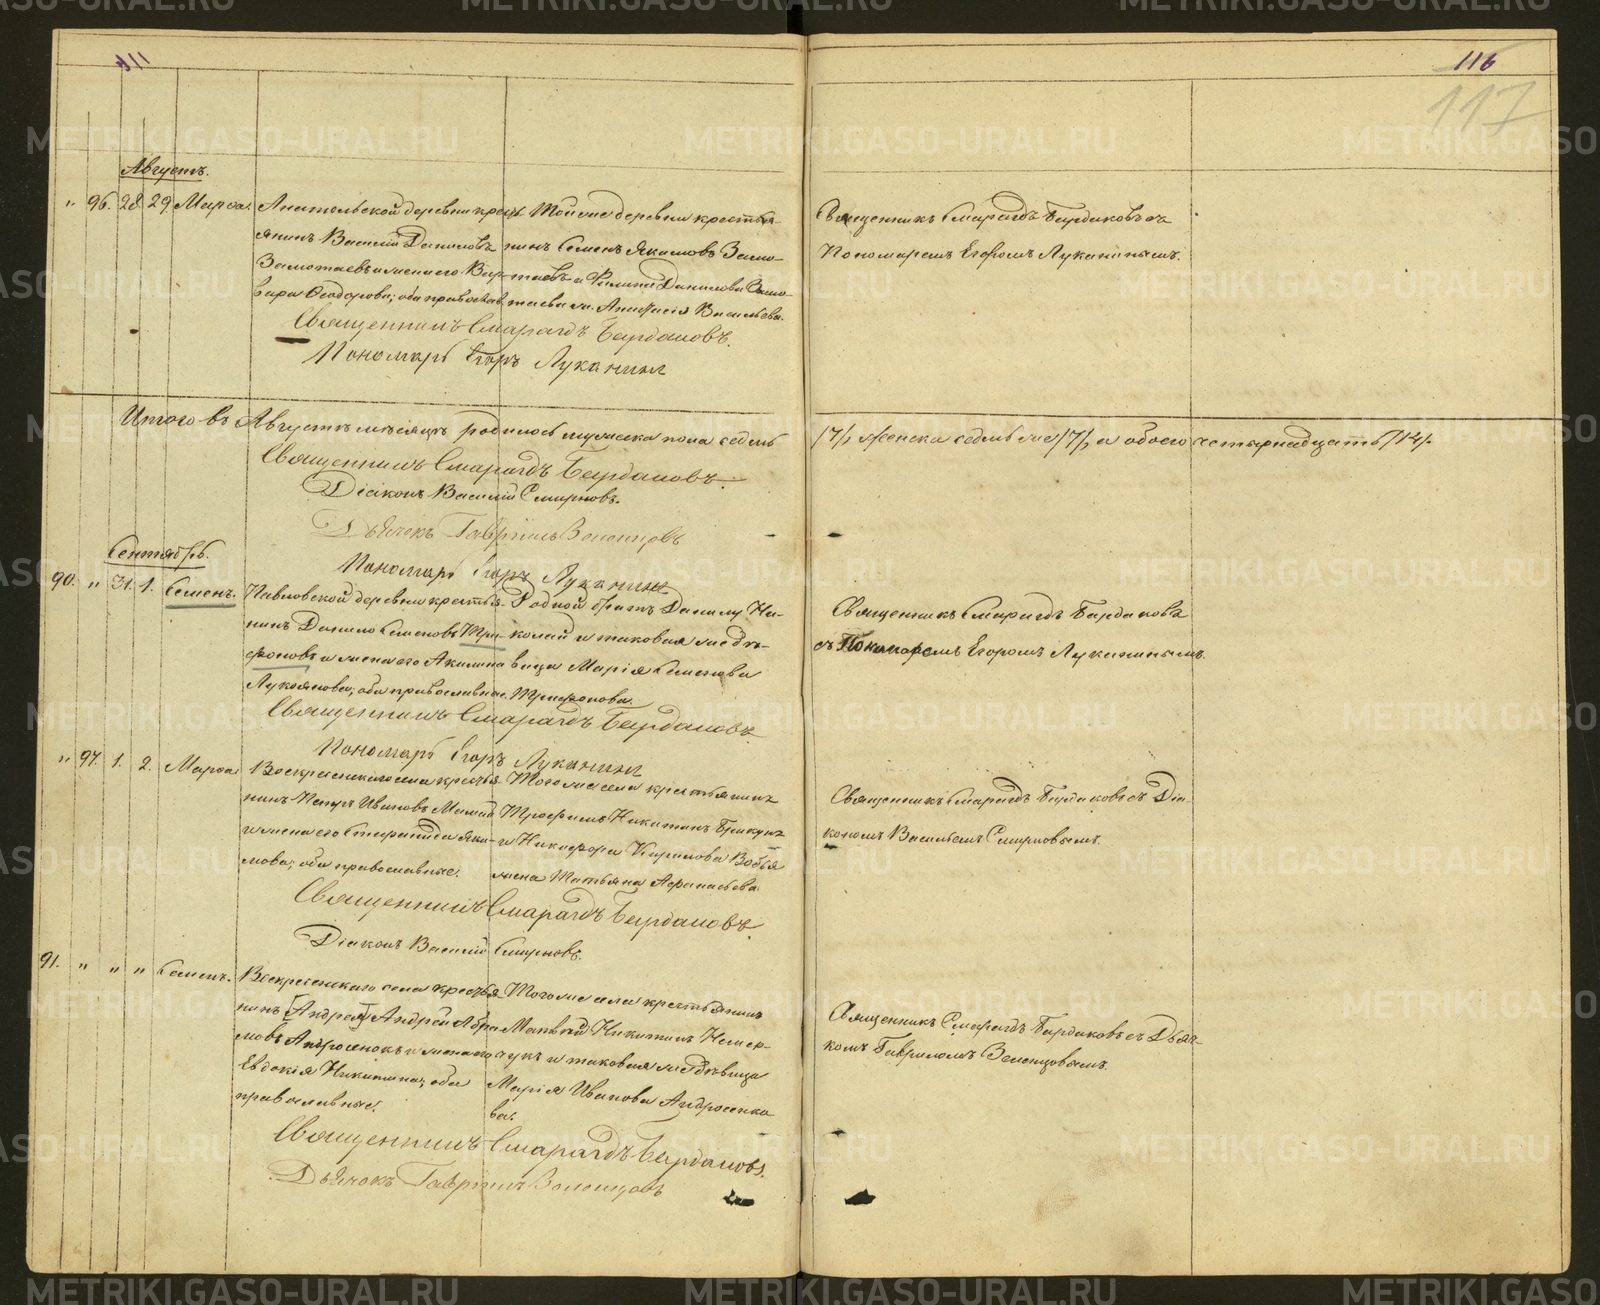 116
117
Августъ.
" 96. 28. 29. Марѳа.
деревни
Той же деревни крестья-
янинъ Василій Даниловъ
нинъ Семенъ Якимовъ
Замотаевъ и жена его
и Филипа Данилова
Ѳеодорова; оба православ.
Васильева.
Священникъ Смарагдъ Бардаковъ.
Пономарь Егоръ Луканинъ
Священникъ Смарагдъ Бардаковъ съ
Пономаремъ Егоромъ Луканинымъ.
Итого въ Августѣ мѣсяцѣ родилось мужеска пола седмь
/7/, женска седмь же /7/, а обоего четырнадцать /14/.
Священникъ Смарагдъ Бардаковъ.
Діаконъ Василій Смирновъ.
Дьячекъ Гавріилъ Зеленцовъ
Пономарь Егоръ Луканинъ
Сентябрь.
90. " 31. 1. Семенъ.
Павловской деревни крестья-
нинъ Данило Семеновъ Три-
фоновъ и жена его Акилина
Лукоянова; оба православные.
Родной братъ Данилу Ни-
колай и таковая же дѣ-
вица Марія Семенова
Трифонова.
Священникъ Смарагдъ Бардаковъ
Пономарь Егоръ Луканинъ
Священникъ Смарагдъ Бардаковъ
съ Пономаремъ Егоромъ Луканинымъ.
" 97. 1. 2. Марѳа.
Воскресенскаго села крестья-
нинъ Петръ Ивановъ
и жена его Степанида Яки-
мова; оба православные.
Того же села крестьянинъ
Трофимъ Никитинъ
и Никифора Кирилова
жена Татьяна Афанасьева.
Священникъ Смарагдъ Бардаковъ
Діаконъ Василій Смирновъ.
Священникъ Смарагдъ Бардаковъ съ Діа-
кономъ Васильемъ Смирновымъ.
91. " " " Семенъ.
Воскресенскаго села крестья-
нинъ [Андрей] Андрей Абра-
мовъ Андросенокъ и жена его
Евдокія Никитина; оба
православные.
Того же села крестьянинъ
Матвѣй Никитинъ
и таковая же дѣвица
Марія Иванова Андросенко-
ва.
Священникъ Смарагдъ Бардаковъ.
Дьячекъ Гавріилъ Зеленцовъ
Священникъ Смарагдъ Бардаковъ съ Дьяч-
комъ Гавриломъ Зеленцовымъ.
METRIKI.GASO-URAL.RU